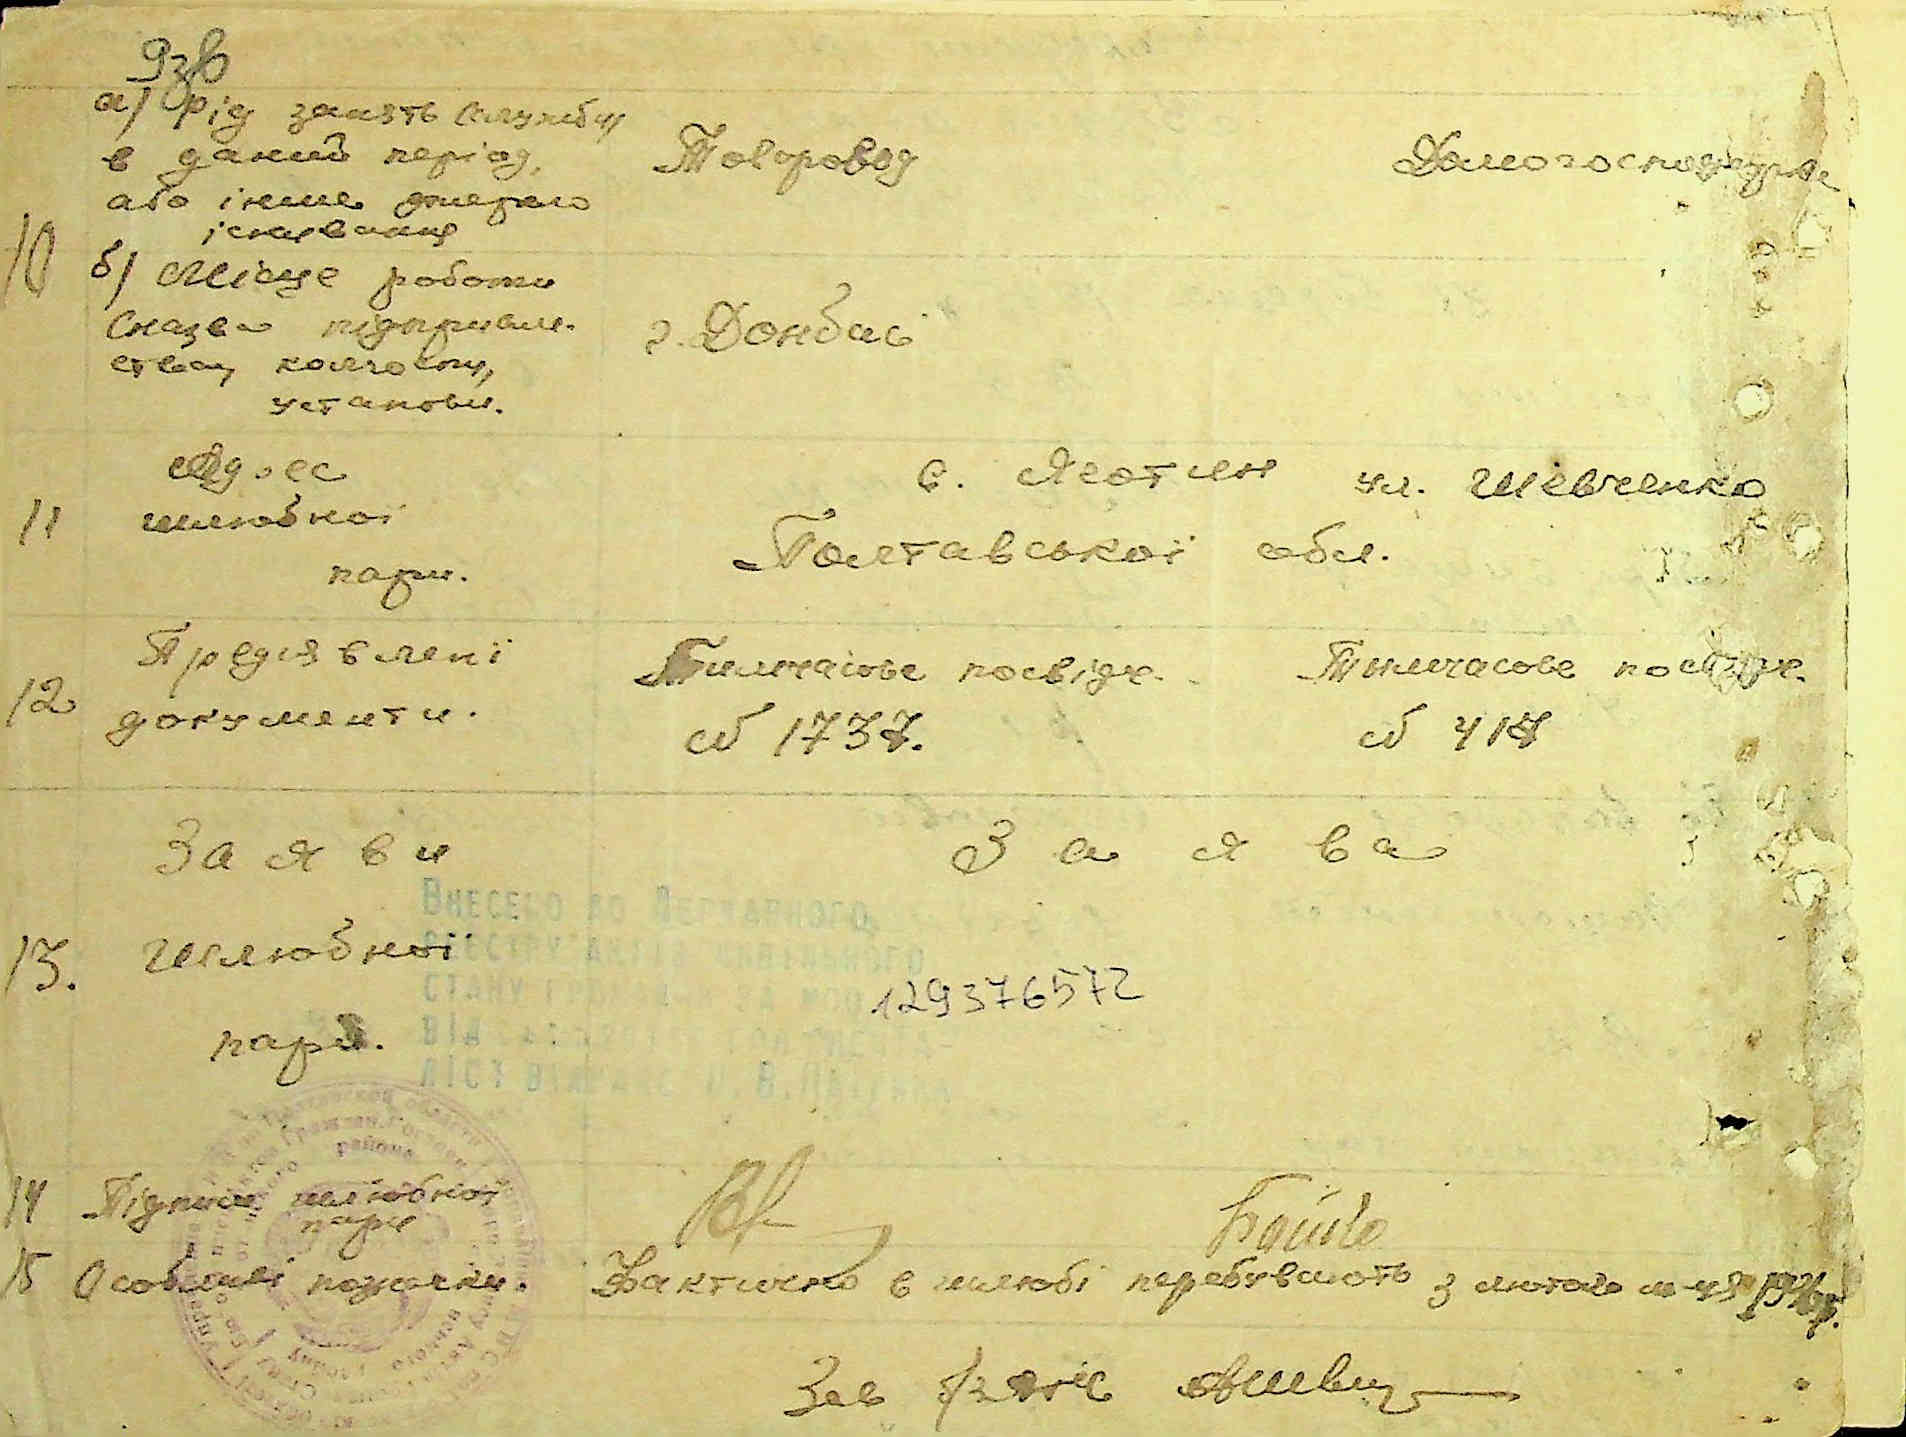 10
а) рід занять (службу
в даний період,
або інше джерело
існування
Товаровод
Домогосподарка
б) Місце роботи
(назва підприєм-
ства, колгоспу,
установи.
г. Донбас
11
Адрес
шлюбної
пари.
с. Яготин ул. Шевченко
Полтавської обл.
12
Предявлені
документи.
Тимчасове посвідч.
№ 1737.
Тимчасове посвідч.
№ 417
13.
Заяви
шлюбної
пари.
Заява
Внесено до Державного
реєстру актів цивільного
стану громадян за №
129376572
від
14
Підписи шлюбної
пари
Байło
15
Особливі позначки.
Фактично в шлюбі перебувають з лютого м-ця
Зав